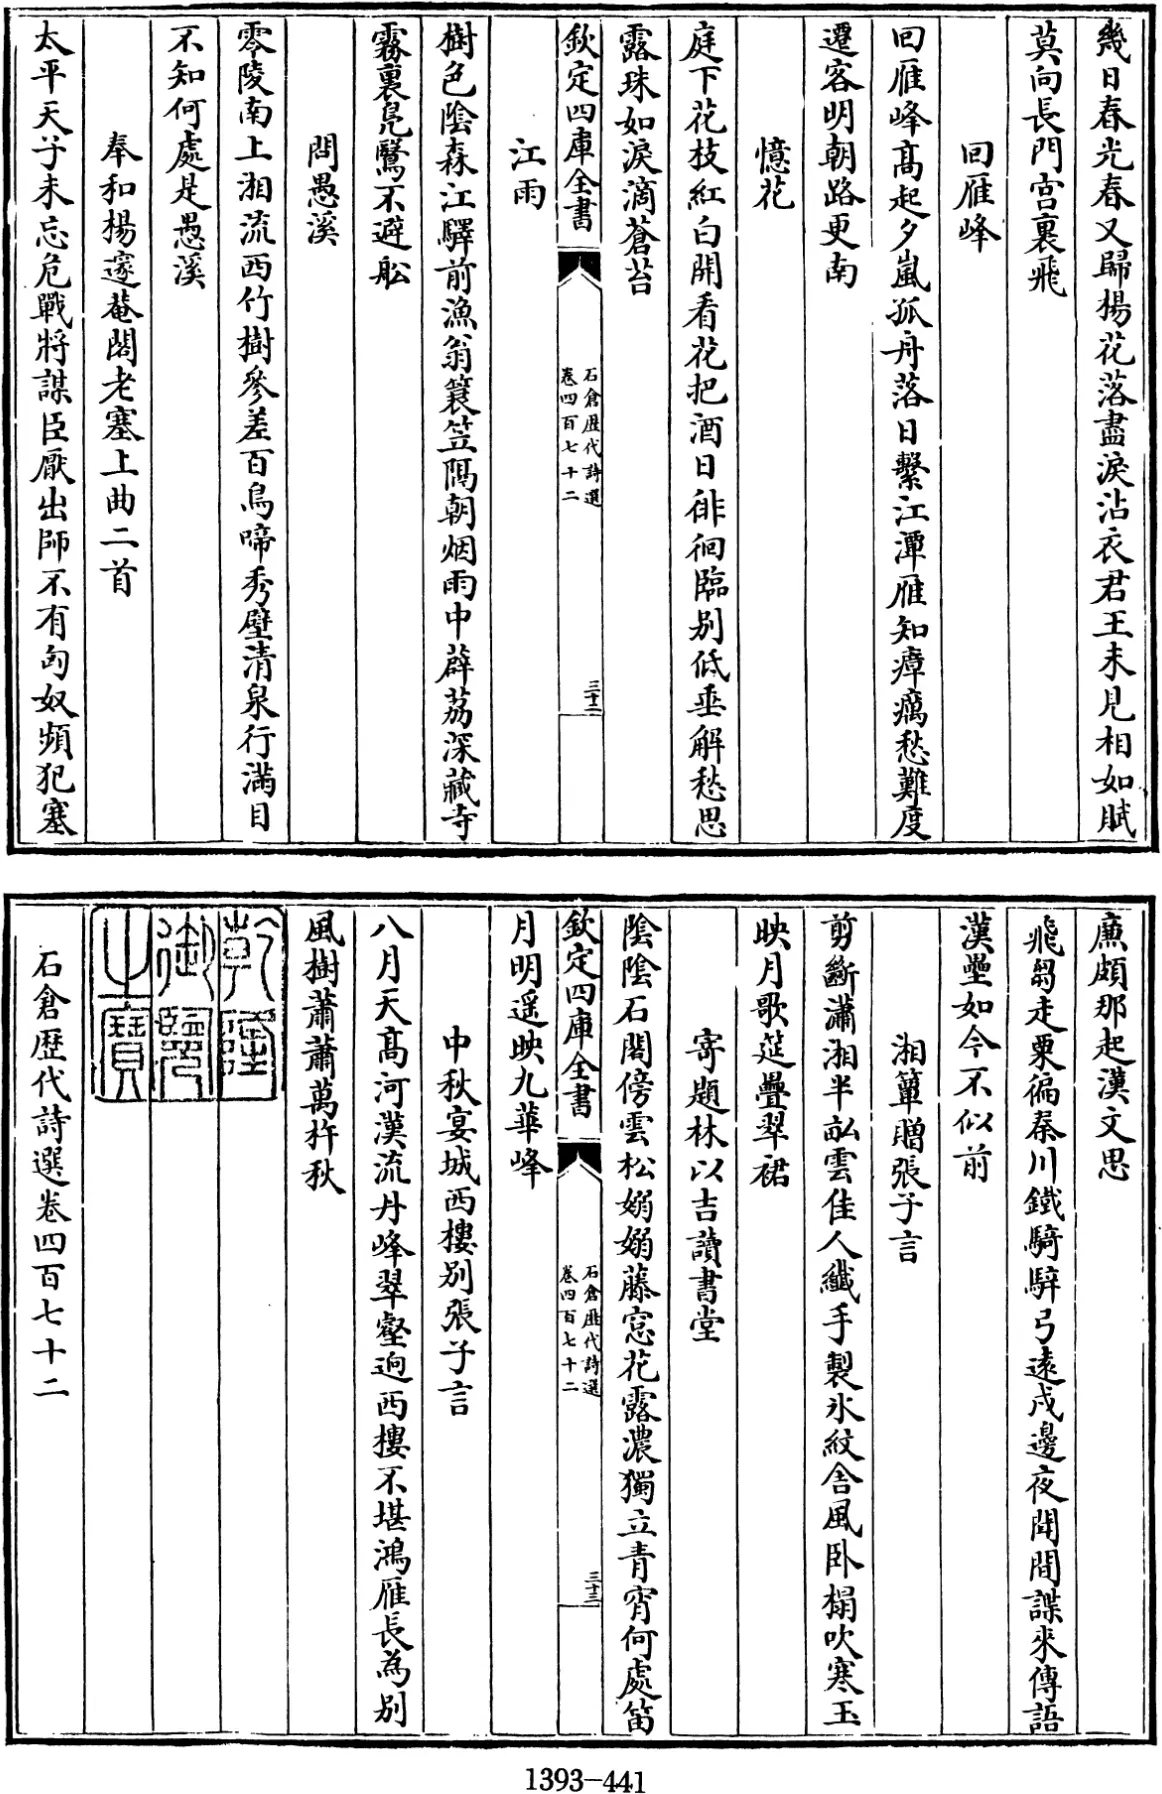 幾日春光春又歸揚花落盡淚沾衣君王未見相如賦
莫向長門宫裏飛
回雁峰
回雁峰髙起夕嵐孤舟落日繫江潭雁知瘴癘愁難度
遷客明朝路更南
憶花
庭下花枝紅白開看花把酒日徘徊臨别低垂解愁思
露珠如淚滴蒼苔
欽定四庫全書
石倉歴代詩選
卷四百七十二
三十二
江雨
樹色陰森江驛前漁翁簑笠隔朝烟雨中薜茘深藏寺
霧裏鳬鷖不避舩
問愚溪
零陵南上湘流西竹樹參差百鳥啼秀壁清泉行滿目
不知何處是愚溪
奉和楊邃菴閣老塞上曲二首
太平天子未忘危戰將謀臣厭出師不有匈奴頻犯塞
廉頗那起漢文思
飛芻走粟徧秦川鐵騎騂弓遠戍邊夜聞間諜來傳語
漢壘如今不似前
湘簟贈張子言
剪斷瀟湘半畝雲佳人纖手製氷紋含風卧榻吹寒玉
映月歌筵疊翠裙
寄題林以吉讀書堂
陰陰石閣傍雲松嫋嫋藤窓花露濃獨立青宵何處笛
月明遥映九華峰
欽定四庫全書
石倉歴代詩選
卷四百七十二
三十三
中秋宴城西樓别張子言
八月天髙河漢流丹峰翠壑逈西樓不堪鴻雁長為别
風樹蕭蕭萬杵秋
乾隆
御覽
之寳
石倉歴代詩選卷四百七十二
1393-441